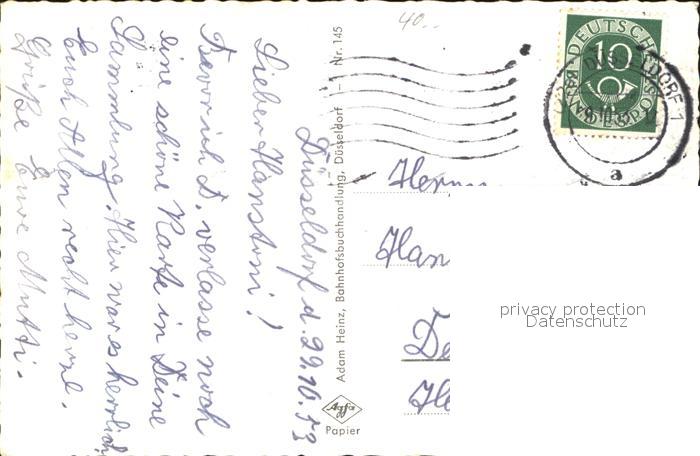 Düsseldorf d. 29.10.53
Lieber Hanstoni!
Bevor ich D. verlasse noch
eine schöne Karte in Deine
Sammlung. Hier war es herrlich
Euch Allen recht herzl.
Grüße Eure Mutti.
40.-
Adam Heinz, Bahnhofsbuchhandlung, Düsseldorf Nr. 145
Agfa
Papier
DEUTSCHE
10
DÜSSELDORF 1
a
Herrn
Han
De
privacy protection
Datenschutz